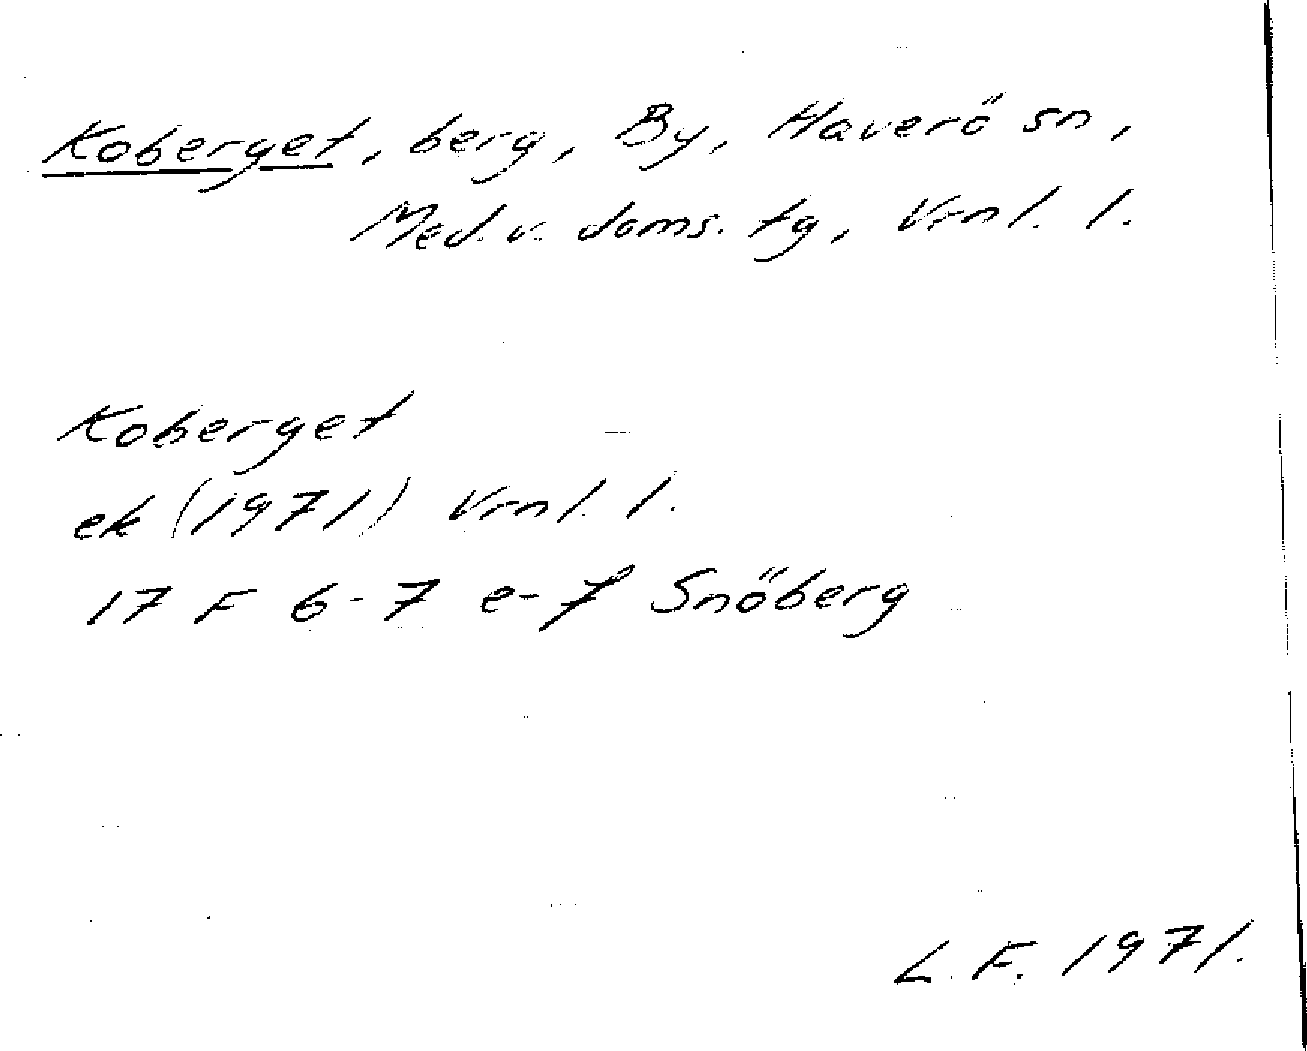 Koberget, berg, By, Haverö sn,
Med. v. doms. tg, Vrnl. l.
Koberget
ek (1971) Vrnl. l.
17 F 6-7 e-f Snöberg
L. F. 1971.